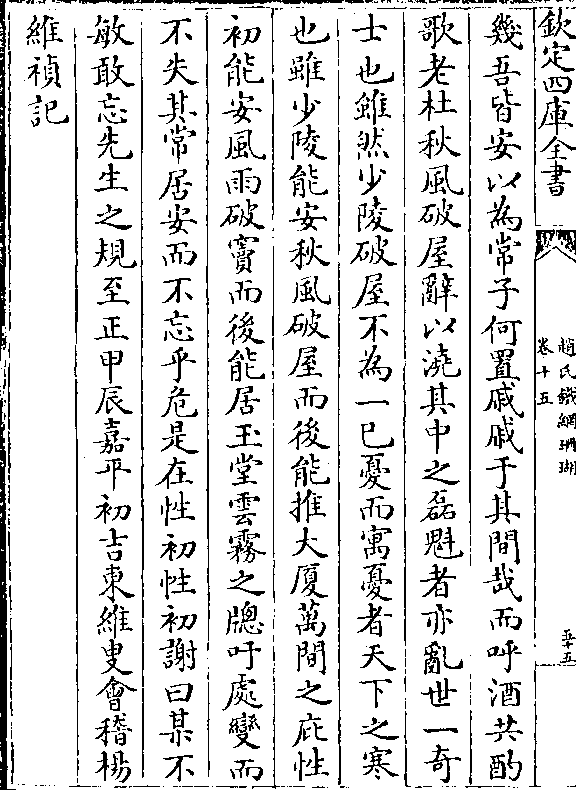 欽定四庫全書
趙氏鐵網珊瑚
卷十五
五十五
幾吾皆安以為常子何置戚戚于其間哉而呼酒共酌
歌老杜秋風破屋辭以澆其中之磊魁者亦亂世一奇
士也雖然少陵破屋不為一已憂而寓憂者天下之寒
也雖少陵能安秋風破屋而後能推大厦萬間之庇性
初能安風雨破竇而後能居玉堂雲霧之牕吁處變而
不失其常居安而不忘乎危是在性初性初謝曰某不
敏敢忘先生之規至正甲辰嘉平初吉東維叟會稽楊
維禎記